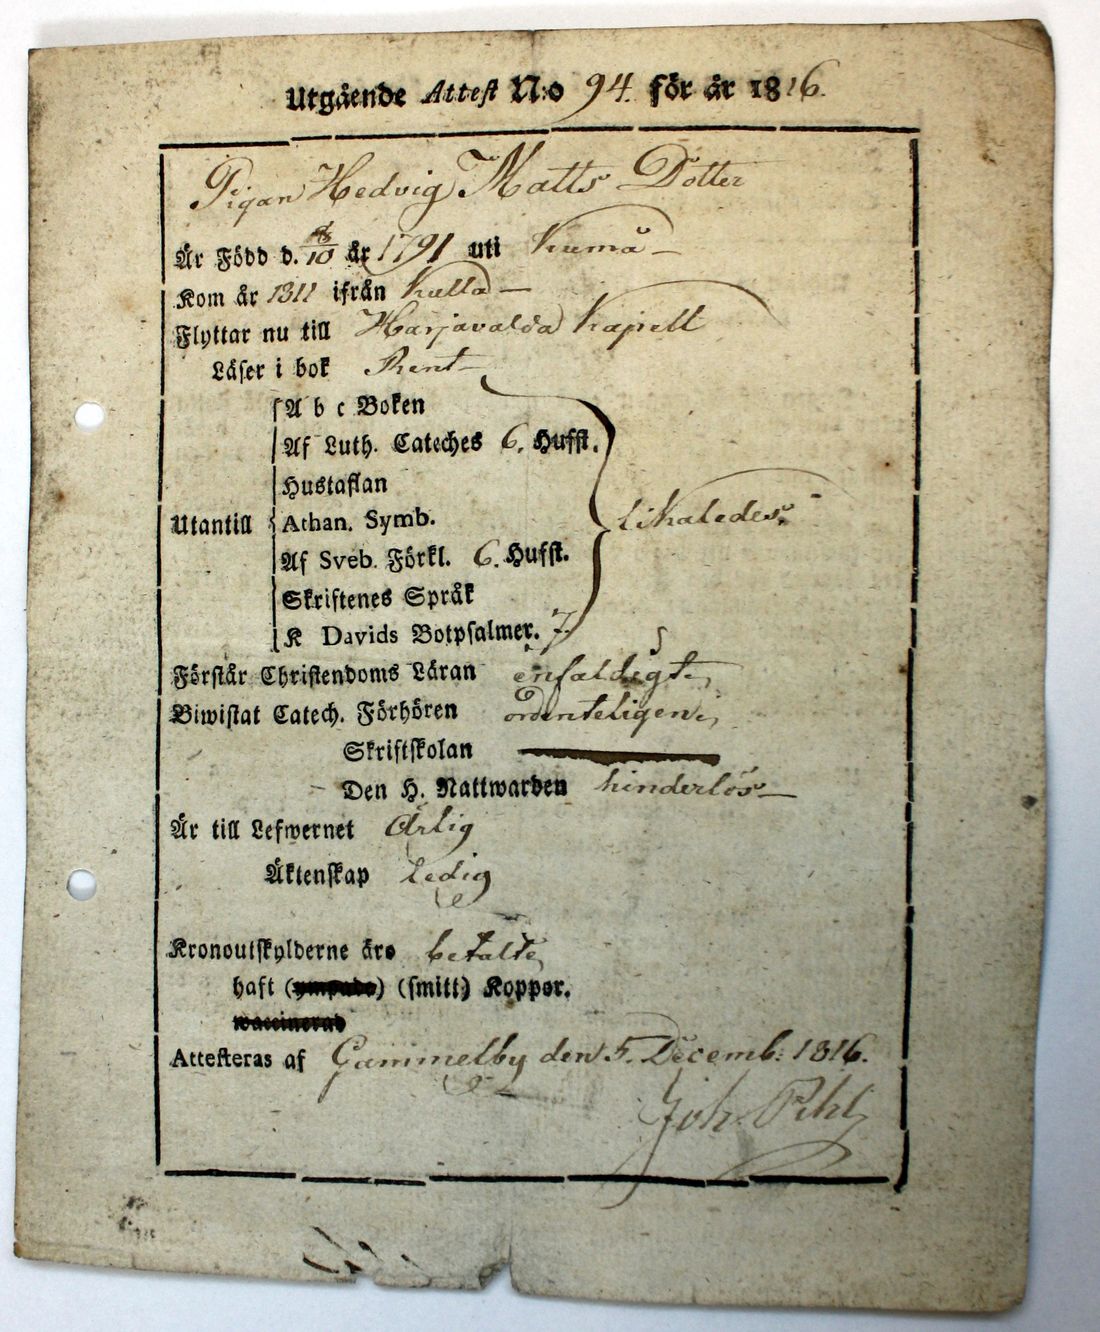 Utgående Attest N:o 94. för år 1816.
Pigan Hedvig Matts Dotter
Är Född d. /10 år 1791 uti Kumå
Kom år 1811 ifrån Kulla
Flyttar nu till Harjavalda Kapell
Läser i bok Rent
A b c Boken
Af Luth. Cateches 6. Hufst.
Hustaflan
Utantill Athan. Symb. likaledes.
Af Sveb. Förkl. 6. Hufst.
Skriftenes Språk
K Davids Botpsalmer. 7.
Förstår Christendoms Läran enfaldigt,
Biwistat Catech. Förhören ordenteligen,
Skriftskolan
Den H. Nattwarden hinderlös
Är till Lefwernet Ärlig
Äktenskap Ledig
Kronoutskylderne äro betalte,
haft (ympade) (smitt) Koppor.
waccinerad
Attesteras af Gammelby den 5. Decemb: 1816.
Joh. Pihl